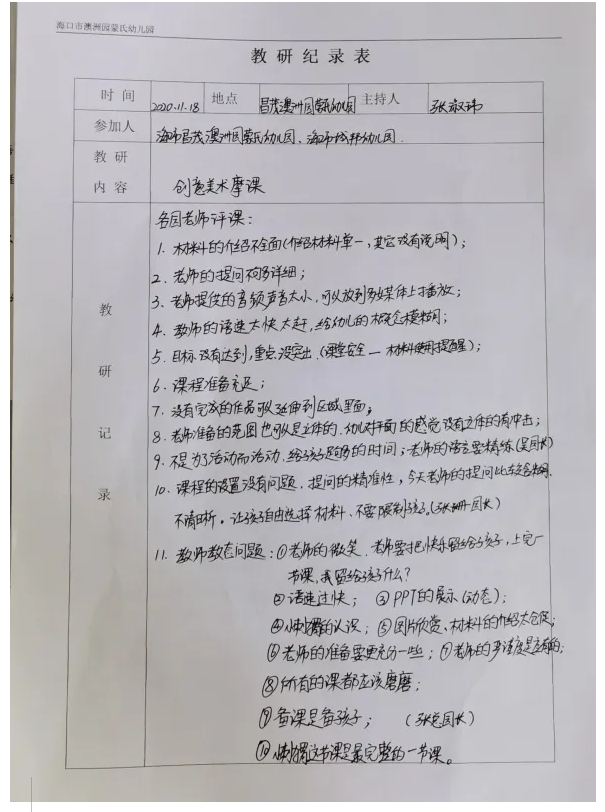 海口市澳洲园蒙氏幼儿园
教研纪录表
时间 2020.11.18 地点 昌茂澳洲园蒙氏幼儿园 主持人 张
参加人 海口市昌茂澳洲园蒙氏幼儿园、海口市 幼儿园
教研
内容 创意美术摩课
教研记录
各园老师评课：
1. 材料的介绍不全面(介绍材料单一，其它没有说明)；
2. 老师的提问不够详细；
3. 老师提供的音频声音太小，可以放到多媒体上播放；
4. 教师的语速太快太赶，给幼儿的概念模糊；
5. 目标没有达到，重点没突出(课堂安全—材料使用提醒)；
6. 课程准备充足；
7. 没有完成的作品可以延伸到区域里面。
8. 老师准备的范图也可以是立体的，幼儿对平面的感觉没有立体的有冲击；
9. 不是为了活动而活动，给孩子足够的时间；老师的语言要精练(吴园长)
10. 课程的设置没有问题，提问的精准性，今天老师的提问比较含糊
不清晰。让孩子自由选择材料、不要限制孩子(张 园长)
11. 教师教态问题：①老师的微笑，老师要把快乐留给孩子，上完一
节课，我留给孩子什么？
②语速过快；③PPT的展示(动态)；
④ 的认识；⑤图片欣赏、材料的介绍太仓促；
⑥老师的准备要更充分一些；⑦老师的 是应有的；
⑧所有的课都应该磨磨；
⑨备课是备孩子； (张总园长)
⑩ 这节课是最完整的一节课。